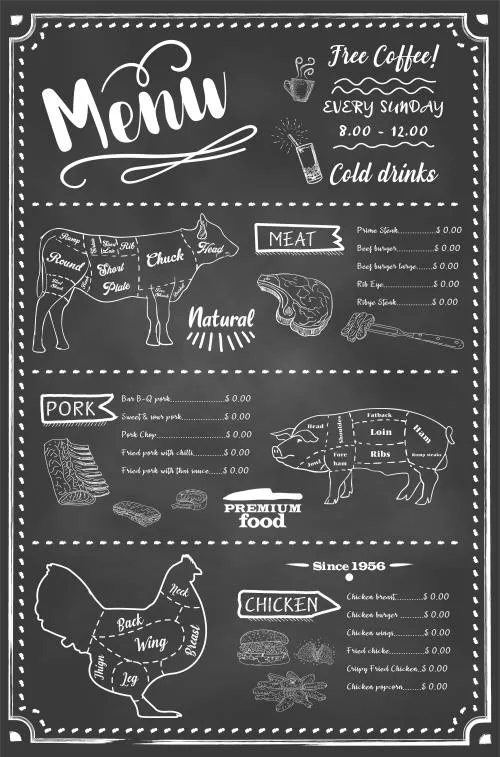 Menu
Free Coffee!
EVERY SUNDAY
8.00 - 12.00
Cold drinks
Rump
Rib
Round
Short
Plate
Chuck
Head
Natural
MEAT
Prime Steak..................$ 0.00
Beef burger..................$ 0.00
Beef burger large.......$ 0.00
Rib Eye.......................$ 0.00
Ribye Steak..................$ 0.00
PORK
Bar B-Q pork......................$ 0.00
Sweet & sour pork...............$ 0.00
Pork Chop..........................$ 0.00
Fried pork with chilli............$ 0.00
Fried pork with thai sauce......$ 0.00
Head
Shoulder
Fatback
Loin
Ham
Jowl
Fore
ham
Ribs
Rump steaks
PREMIUM
food
Since 1956
Neck
Back
Wing
Breast
Thign
Leg
CHICKEN
Chicken breast..........$ 0.00
Chicken burger..........$ 0.00
Chicken wings...........$ 0.00
Fried chicke..............$ 0.00
Crispy Fried Chicken..$ 0.00
Chicken popcorn........$ 0.00